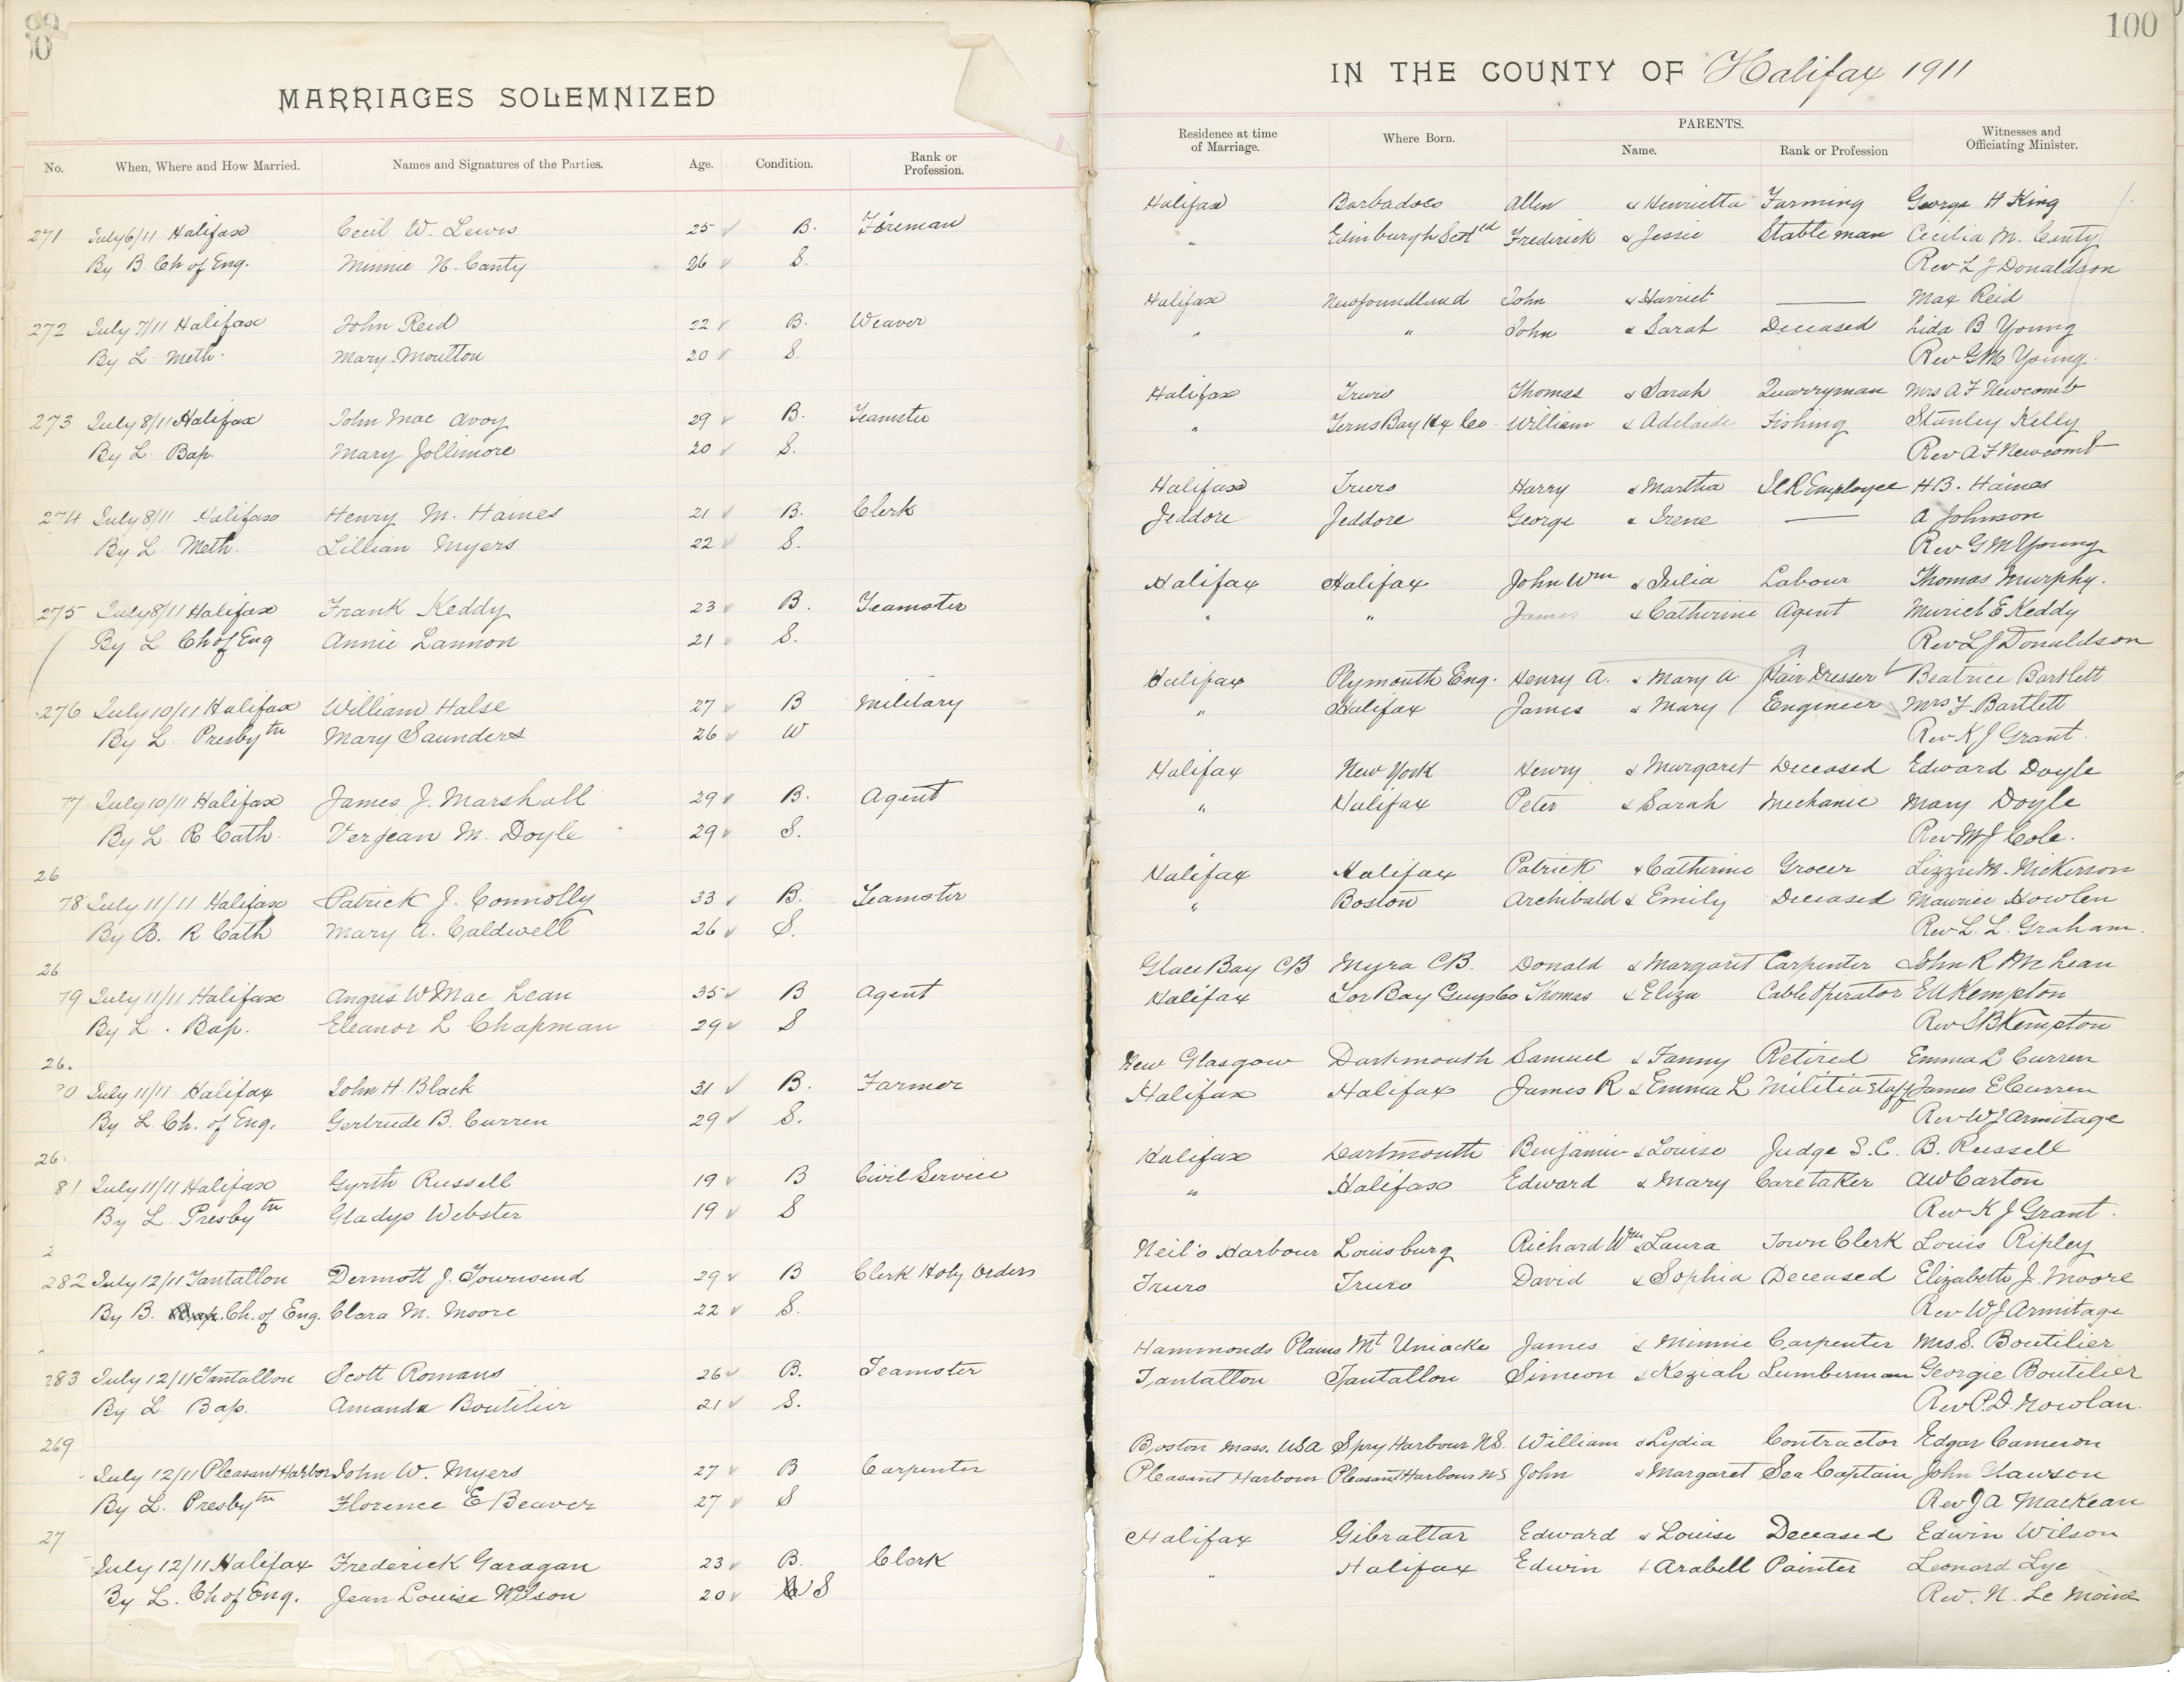 99
100
MARRIAGES SOLEMNIZED
IN THE COUNTY OF Halifax 1911
No. When, Where and How Married. Names and Signatures of the Parties. Age. Condition. Rank or Profession.
Residence at time of Marriage. Where Born. PARENTS. Name. Rank or Profession Witnesses and Officiating Minister.
271 July 6/11 Halifax Cecil W. Lewis 25 B. Foreman
By B. Ch of Eng. Minnie N. Canty 26 S.
272 July 7/11 Halifax John Reid 22 B. Weaver
By L Meth. Mary Moulton 20 S.
273 July 8/11 Halifax John Mac Avoy 29 B. Teamster
By L Bap. Mary Jollimore 20 S.
274 July 8/11 Halifax Henry M. Haines 21 B. Clerk
By L Meth. Lillian Myers 22 S.
275 July 8/11 Halifax Frank Keddy 23 B. Teamster
By L Ch of Eng Annie Lannon 21 S.
276 July 10/11 Halifax William Halse 27 B Military
By L Presbytn Mary Saunders 26 W
77 July 10/11 Halifax James J. Marshall 29 B. Agent
By L R Cath. Verjean M. Doyle 29 S.
26
78 July 11/11 Halifax Patrick J. Connolly 33 B. Teamster
By B. R Cath Mary A. Caldwell 26 S.
26
79 July 11/11 Halifax Angus W Mac Lean 35 B Agent
By L. Bap. Eleanor L Chapman 29 S
26.
80 July 11/11 Halifax John H. Black 31 B. Farmer
By L. Ch. of Eng. Gertrude B. Curren 29 S.
26.
81 July 11/11 Halifax Gyrth Russell 19 B Civil Service
By L. Presbytn Gladys Webster 19 S
2
282 July 12/11 Tantallon Dermott J. Townsend 29 B Clerk Holy Orders
By B. Bap. Ch. of Eng. Clara M. Moore 22 S.
283 July 12/11 Tantallon Scott Romans 26 B. Teamster
By L. Bap. Amanda Boutilier 21 S.
269
July 12/11 Pleasant Harbor John W. Myers 27 B Carpenter
By L. Presbytn Florence E Beaver 27 S
27
July 12/11 Halifax Frederick Garagan 23 B. Clerk
By L. Ch of Eng. Jean Louise Wilson 20 S
Halifax Barbadoes Allen & Henrietta Farming George H King
" Edinburgh Scotld Frederick & Jessie Stableman Cecilia M. Canty
Rev L J Donaldson
Halifax Newfoundland John & Harriet — Max Reid
" " John & Sarah Deceased Lida B Young
Rev G M Young.
Halifax Truro Thomas & Sarah Quarryman Mrs A F Newcomb
" Terns Bay Hx Co. William & Adelaide Fishing Stanley Kelly
Rev A F Newcomb
Halifax Truro Harry & Martha ICR Employee H B. Haines
Jeddore Jeddore George & Irene — A Johnson
Rev G M Young
Halifax Halifax John Wm & Julia Labour Thomas Murphy.
" " James & Catherine Agent Muriel E Keddy
Rev L J Donaldson
Halifax Plymouth Eng. Henry A. & Mary A Hair Dresser Beatrice Bartlett
" Halifax James & Mary Engineer Mrs F. Bartlett
Rev K J Grant.
Halifax New York Henry & Margaret Deceased Edward Doyle
" Halifax Peter & Sarah Mechanic Mary Doyle
Rev M J Cole.
Halifax Halifax Patrick & Catherine Grocer Lizzie M. Nickerson
" Boston Archibald & Emily Deceased Maurice Howlen
Rev L. L. Graham.
Glace Bay CB Myra CB. Donald & Margaret Carpenter John R McLean
Halifax Tor Bay Guys Co Thomas & Eliza Cable Operator E U Kempton
Rev S B Kempton
New Glasgow Dartmouth Samuel & Fanny Retired Emma L Curren
Halifax Halifax James R & Emma L Militia Staff James E Curren
Rev W J Armitage
Halifax Dartmouth Benjamin & Louise Judge S.C. B. Russell
" Halifax Edward & Mary Caretaker A W Carton
Rev K J Grant.
Neil's Harbour Louisburg Richard Wm & Laura Town Clerk Louis Ripley
Truro Truro David & Sophia Deceased Elizabeth J. Moore
Rev W J Armitage
Hammonds Plains Mt Uniacke James & Minnie Carpenter Mrs S. Boutilier
Tantallon Tantallon Simeon & Keziah Lumberman Georgie Boutilier
Rev P. D. Nowlan.
Boston Mass. USA Spry Harbour N.S. William & Lydia Contractor Edgar Cameron
Pleasant Harbour Pleasant Harbour NS John & Margaret Sea Captain John Glawson
Rev J A MacKean
Halifax Gibraltar Edward & Louise Deceased Edwin Wilson
" Halifax Edwin + Arabell Painter Leonard Lye
Rev. N. Le Moine